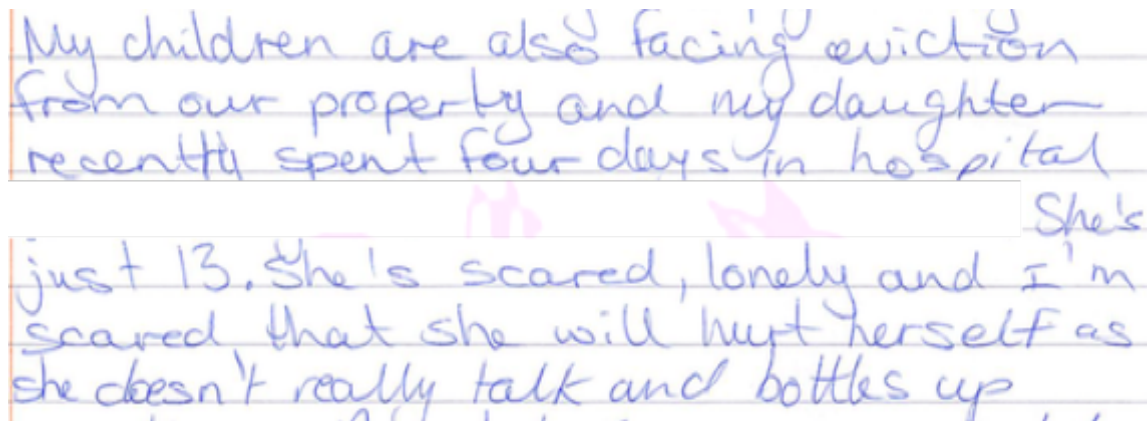 My children are also facing eviction
from our property and my daughter
recently spent four days in hospital
She's
just 13. She's scared, lonely and I'm
scared that she will hurt herself as
she doesn't really talk and bottles up